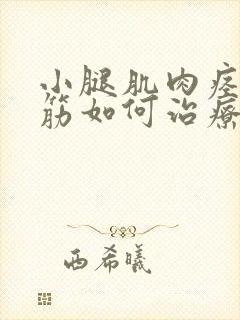 小腿肌肉痉
筋如何治疗
西希曦